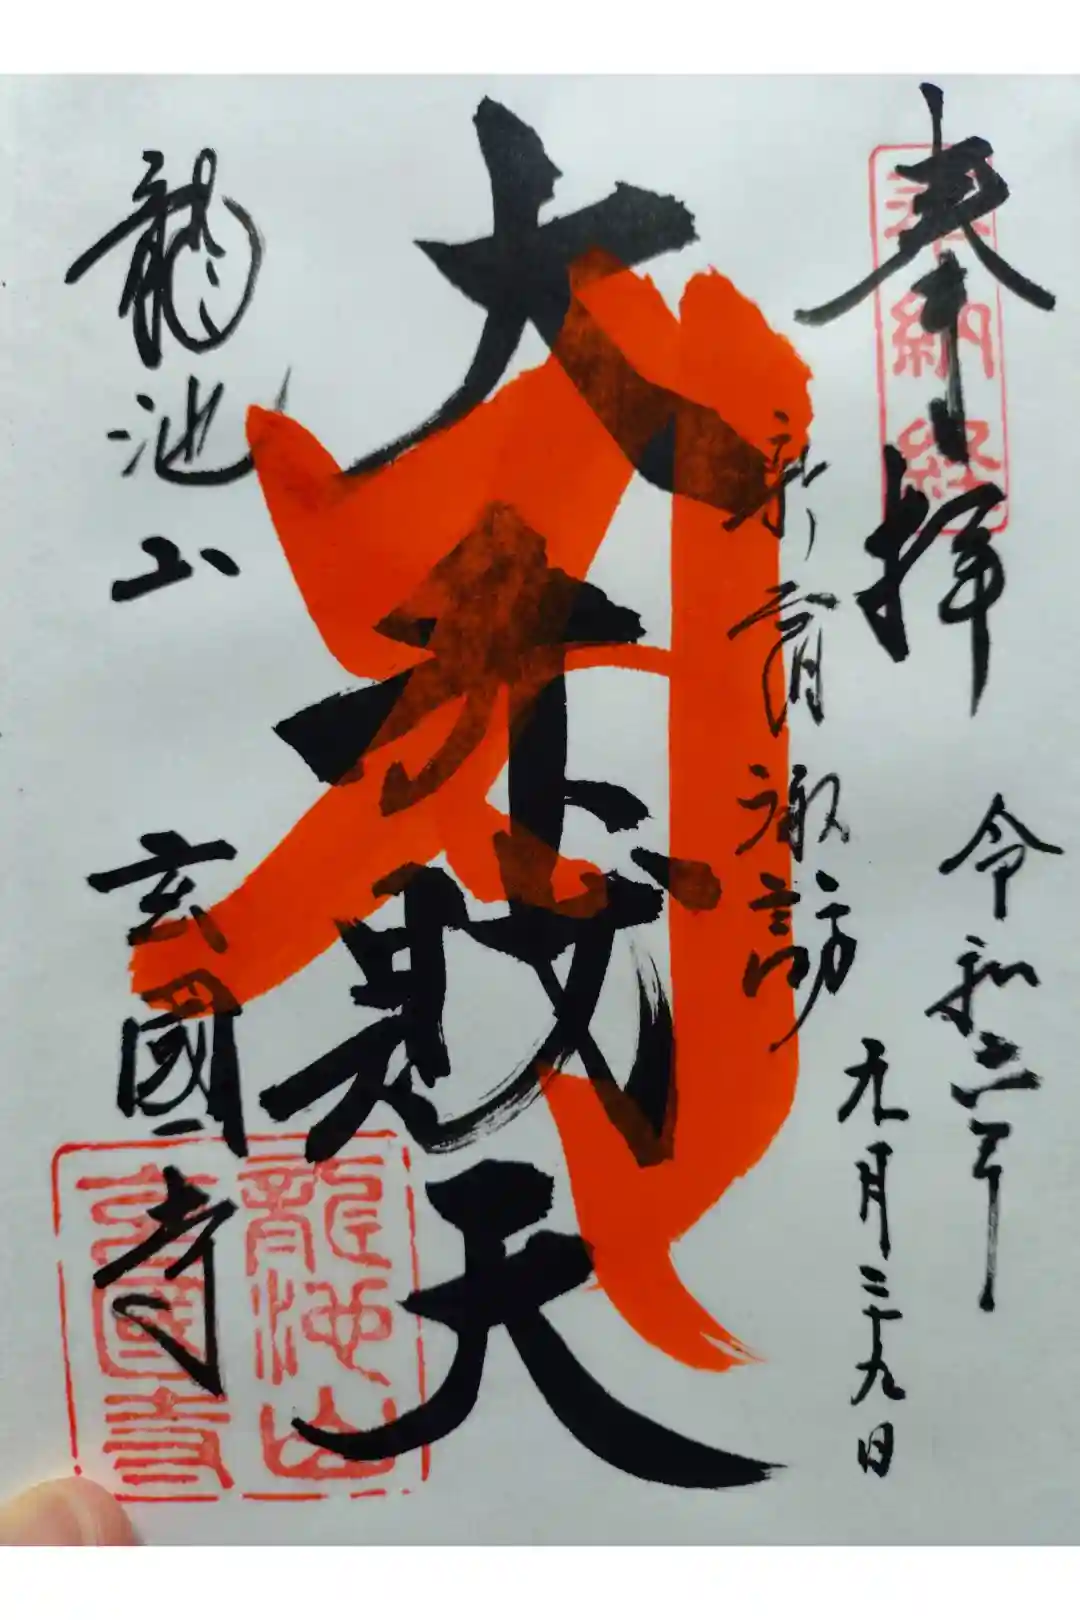 奉拝
奉納経
令和二年
九月二十九日
新宿諏訪
大弁財天
龍池山
玄國寺
龍池山
玄國寺